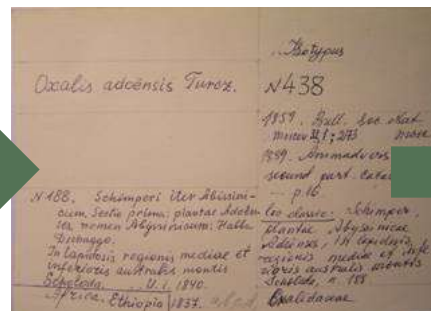 Isotypus
Oxalis adoënsis Turcz.
N438
1859. Bull. Soc.
Moscou II, 1; 273
1899.
secund. part.
p. 16.
N 188. Schimperi Iter Abissini-
cum, Sectio prima: plantae Adoën-
ses, nomen Abyssinicum: Habba
In lapidosis regionis mediae et
inferioris australis montis
Scholoda. U. i. 1840.
Africa. Ethiopia, 1837. a, b, c, d,
loc. class.: Schimper,
Plantae Abyssinicae
Adoënses, in lapidosis
regionis mediae et infe-
rioris australis montis
Scholoda, n. 188.
Oxalidaceae